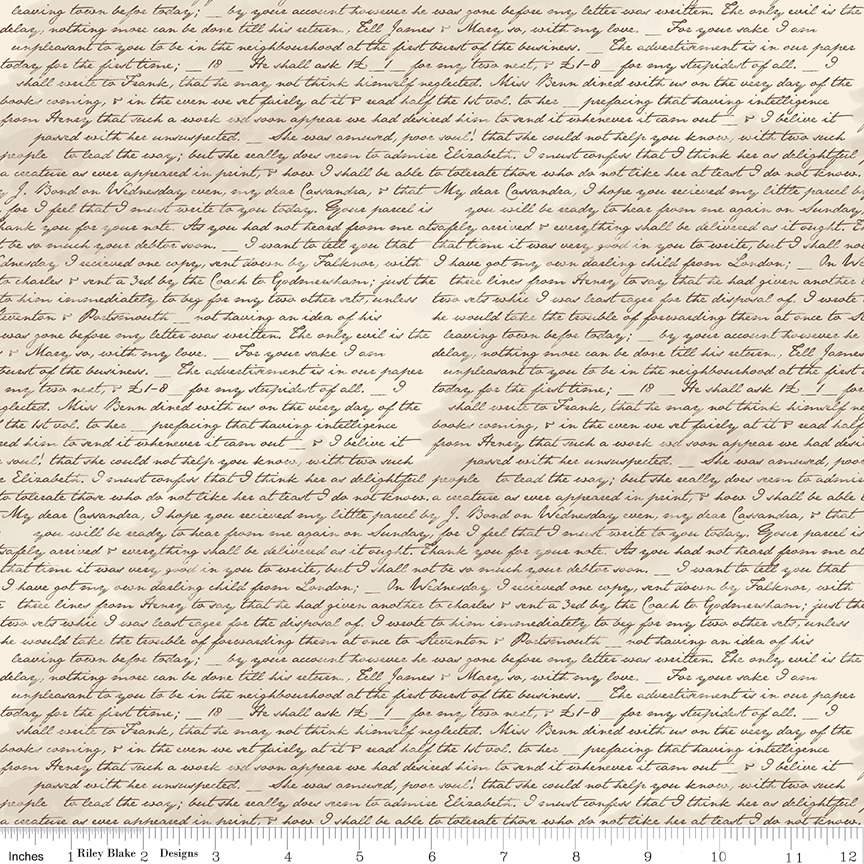 leaving town before today; _ by your account however he was gone before my letter was written. The only evil is the
delay, nothing more can be done till his return. Tell James & Mary so, with my love. _ For your sake I am
unpleasant to you to be in the neighbourhood at the first burst of the business. _ The advertisment is in our paper
today for the first time; _ 18 _ He shall ask 1£ _1_ for my two next, & £1-8 _ for my stupidest of all. _ I
shall write to Frank, that he may not think himself neglected. Miss Benn dined with us on the very day of the
books coming, & in the even we set fairly at it & read half the 1st vol. to her _ prefacing that having intelligence
from Henry that such a work wd soon appear we had desired him to send it whenever it cam out _ & I beleive it
passed with her unsuspected. _ She was amused, poor soul! that she could not help you know, with two such
people to lead the way; but she really does seem to admire Elizabeth. I must confess that I think her as delightful
a creature as ever appeared in print, & how I shall be able to tolerate those who do not like her at least I do not know.
y J. Bond on Wednesday even, my dear Cassandra, & that My dear Cassandra, I hope you recieved my little parcel b
, for I feel that I must write to you today. Your parcel is you will be ready to hear from me again on Sunday
hank you for your note. As you had not heard from me at safely arrived & everything shall be delivered as it ought. T
t be so much your debtor soon. _ I want to tell you that that time it was very good in you to write, but I shall no
dnesday I recieved one copy, sent down by Falknor, with I have got my own darling child from London; _ On We
to charles & sent a 3ed by the Coach to Godmersham; just the three lines from Henry to say that he had given another
to him immediately to beg for my two other sets, unless two sets whic I was least eager for the disposal of. I wrote
teventon & Portsmouth _ not having an idea of his he would take the trouble of forwarding them at once to St
was gone before my letter was written. The only evil is the leaving town befor today; _ by your account however he
& Mary so, with my love. _ For your sake I am delay, nothing more can be done till his return. Tell James
burst of the business. _ The advertisment is in our paper unpleasant to you to be in the neighbourhood at the first
my two next, & £1-8 _ for my stupidest of all. _ I today for the first time; _ 18 _ He shall ask 1£ _1_ for
glected. Miss Benn dined with us on the very day of the shall write to Frank, that he may not think himself n
the 1st vol. to her _ prefacing that having intelligence books coming, & in the even we set fairly at it & read half
red him to send it whenever it cam out _ & I beleive it from Henry that such a work wd soon appear we had desi
soul! that she could not help you know, with two such passed with her unsuspected. _ She was amused, poor
e Elizabeth. I must confess that I think her as delightful people to lead the way; but she really does seem to admire
to tolerate those who do not like her at least I do not know. a creature as ever appeared in print, & how I shall be able
My dear Cassandra, I hope you recieved my little parcel by J. Bond on Wednesday even, my dear Cassandra, & that
you will be ready to hear from me again on Sunday, for I feel that I must write to you today. Your parcel is
safely arrived & everything shall be delivered as it ought. Thank you for your note. As you had not heard from me at
that time it was very good in you to write, but I shall not be so much your debtor soon. _ I want to tell you that
I have got my own darling child from London; _ On Wednesday I recieved one copy, sent down by Falknor, with
three lines from Henry to say that he had given another to charles & sent a 3ed by the Coach to Godmersham; just the
two sets whic I was least eager for the disposal of. I wrote to him immediately to beg for my two other sets, unless
he would take the trouble of forwarding them at once to Steventon & Portsmouth _ not having an idea of his
leaving town befor today; _ by your account however he was gone before my letter was written. The only evil is the
delay, nothing more can be done till his return. Tell James & Mary so, with my love. _ For your sake I am
unpleasant to you to be in the neighbourhood at the first burst of the business. _ The advertisment is in our paper
today for the first time; _ 18 _ He shall ask 1£ _1_ for my two next, & £1-8 _ for my stupidest of all. _ I
shall write to Frank, that he may not think himself neglected. Miss Benn dined with us on the very day of the
books coming, & in the even we set fairly at it & read half the 1st vol. to her _ prefacing that having intelligence
from Henry that such a work wd soon appear we had desired him to send it whenever it cam out _ & I beleive it
passed with her unsuspected. _ She was amused, poor soul! that she could not help you know, with two such
people to lead the way; but she really does seem to admire Elizabeth. I must confess that I think her as delightful
a creature as ever appeared in print, & how I shall be able to tolerate those who do not like her at least I do not know.
Inches 1 Riley Blake 2 Designs 3 4 5 6 7 8 9 10 11 12